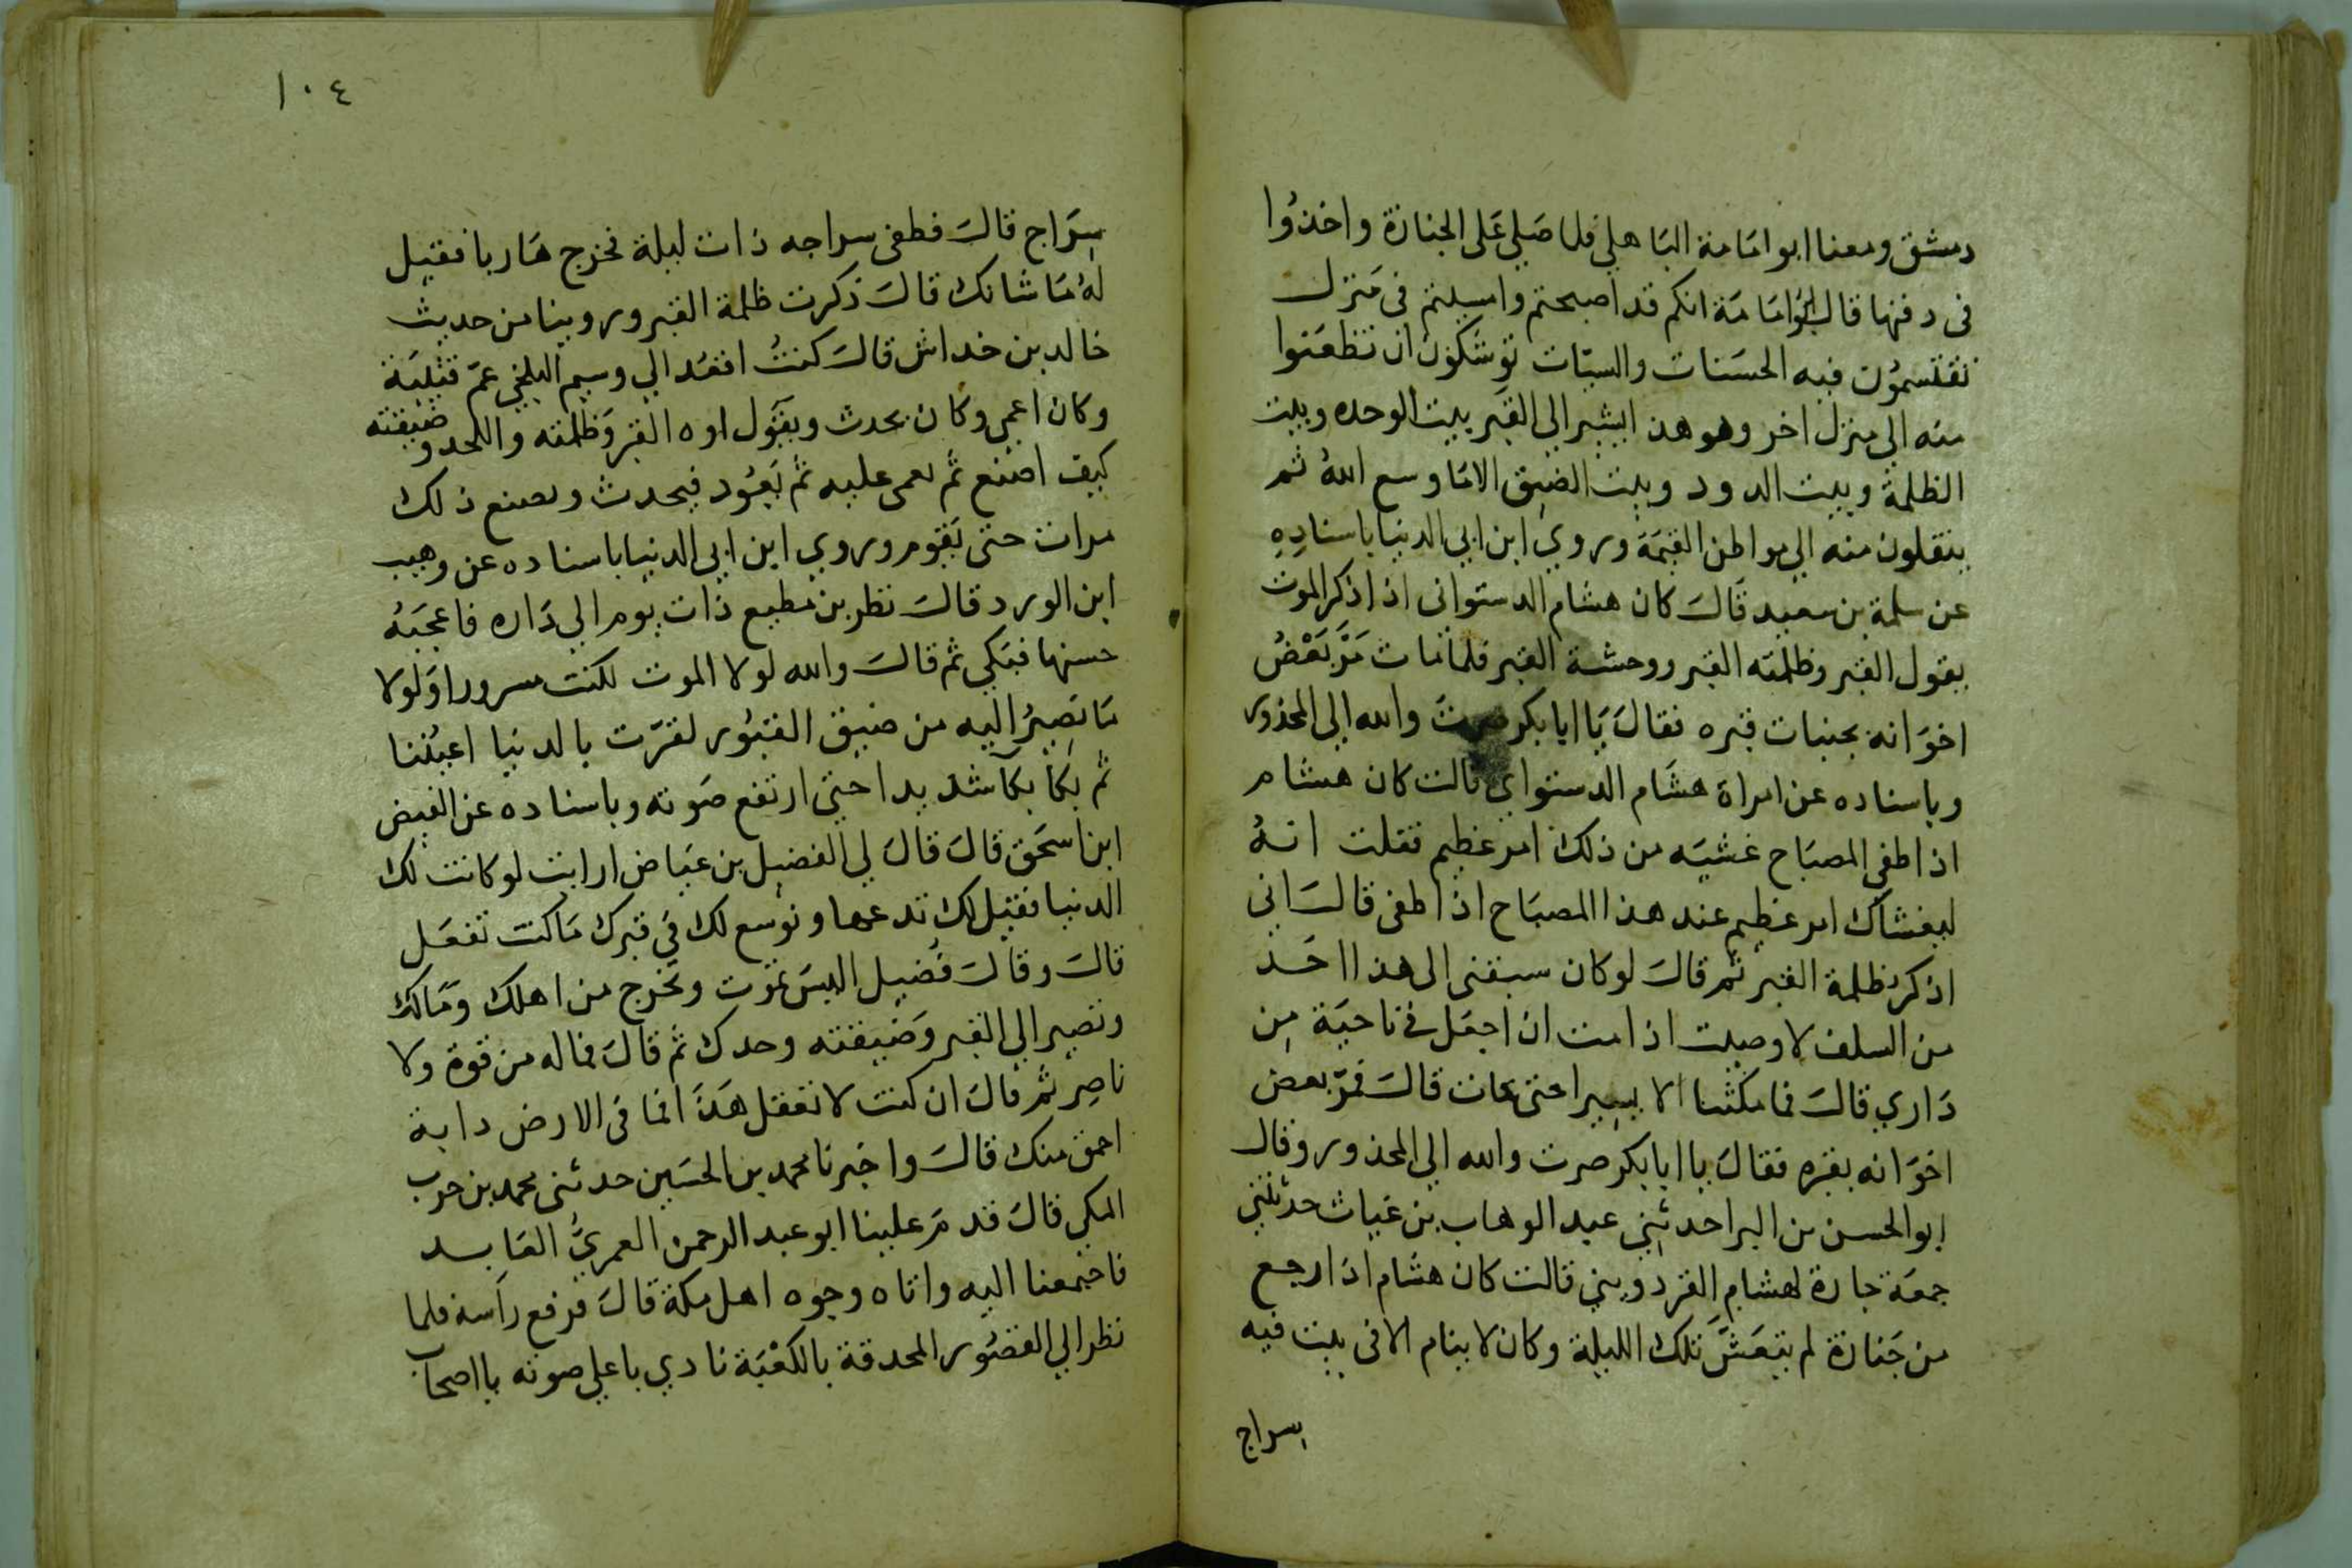 دمشق ومعنا ابو امَامة البَاهلي فلما صَلي عَلى الجنازة واخذوا
فى دفنها قال ابوُامَامَة انكم قد اصبحتم وامسيتم فى مَنزل
تقتسموُن فيه الحسَنات والسيّات توشكوُن ان تظعَنوا
منه الي منزل اخر وهو هذا يشير الي القبر بيت الوحده وبيت
الظلمة وبيت الدود وبيت الضيق الامَا وسع اللهُ ثم
ينقلون منه الي مواطن القيمَة وروي ابن ابي الدنيا باسنادِهِ
عن سلمة بن سعيد قَالَ كان هشام الدستوانى اذا ذكر الموت
يقول القبر وظلمته القبر ووحشة القبر فلما مات مَرَّ بَعْضُ
اخوَانه بجنبات قبره فقالَ يَا ابا بكر صرت والله الي المحذور
وباسناده عن امراة هشَام الدستواي قالت كان هشام
اذا طفي المصبَاح غشيَه من ذلك امر عظيم فقلت انهُ
ليغشاك امر عظيم عند هذا المصبَاح اذا طفى قالَ انى
اذكرُ ظلمة القبر ثم قالَ لو كان سبقنى الى هذا احَد
من السلف لاوصيت اذا مت ان اجعَل فى ناحيَة مِن
دَاري قالَ فما مكثنا الا يسيرا حتى مات قالَ فمرّ بعض
اخوَانه بقبره فقالَ يا ابا بكر صرت والله الي المحذور وقال
ابو الحسن بن البرا حدثني عبد الوهاب بن غياث حدثتني
جمعَة جارة لهشام القردوسي قالت كان هشَام اذا رجع
من جَنازة لم يتعَشَّ تلك الليلة وكان لا ينام الا فى بيت فيه
سراج
١٠٤
سِرَاج قالَ فطفى سراجه ذات ليلة فخرج هَاربا فقيل
لهُ مَا شانك قالَ ذكرت ظلمة القبر وروينا من حديث
خالد بن خداش قالَ كنتُ اقعُد الي وسيم البلخي عمّ قتيبَة
وكان اعمى وكان يحدث ويقَول اوه القبر وَظلمته واللحد وضيقته
كيف اصنع ثم يغمى عليه ثم يَعوُد فيحدث ويصنع ذلك
مرات حتى يَقوم وروي ابن ابي الدنيا باسناده عن وهيب
ابن الورد قالَ نظر بن مطيع ذات يوم الي دَاره فاعجبَهُ
حسنها فبَكي ثم قالَ والله لولا الموت لكنت مسرورا وَلولا
مَا نصِيرُ اليه من ضيق القبوُر لقرّت بالدنيا اعيُننا
ثم بكا بكآ شديدا حتي ارتفع صَوته وباسناده عن الفيض
ابن اسحَق قالَ قالَ لي الفضيل بن عيَاض ارايت لو كانت لك
الدنيا فقيل لك تدعها ونوسع لك في قبرك مَا كنت تفعَل
قالَ وقالَ فُضيل اليسَ تموت وتخرج من اهلك وَمَالك
وتصير الي القبر وَضيقته وحدك ثم قالَ فما له من قوة ولا
ناصِر ثم قالَ ان كنت لا تعقل هَذا فما فى الارض دابة
احمق منك قالَ واخبرنا محمد بن الحسَين حدثنى محمد بن حرب
المكي قالَ قدم عَلينا ابو عبد الرحمن العمريُّ العَابد
فاجتمعنا اليه واتاه وجوه اهل مكة قالَ فرفع رأسه فلما
نظر الي القصُور المحدقة بالكعْبَة نادي باعلي صوته يا اصحاب